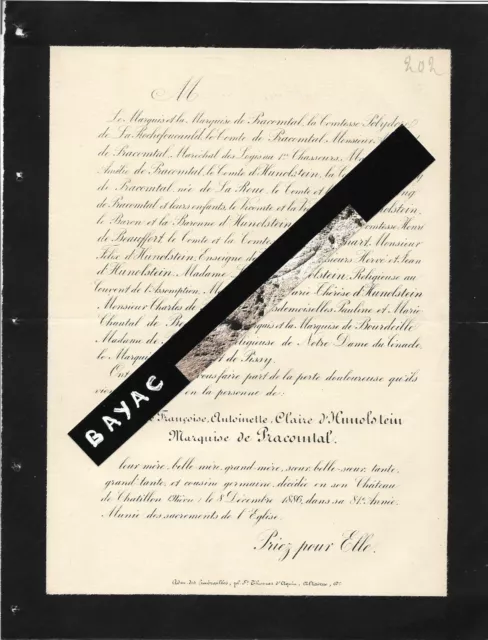 202
M
Le Marquis et la Marquise de Pracomtal, la Comtesse Polydore
de La Rochefoucauld, le Comte de Pracomtal, Monsieur
de Pracomtal, Maréchal des Logis au 1er Chasseurs,
de Pracomtal, le Comte d'Hunolstein, la
de Pracomtal, née de La Roue, le Comte et
de Pracomtal et leurs enfants, le Vicomte et la
le Baron et la Baronne d'Hunolstein, Comtesse Henri
de Beauffort, le Comte et la Monsieur
Félix d'Hunolstein, Enseigne de Hervé et Jean
d'Hunolstein, Madame Religieuse au
Couvent de l'Assomption, Marie Thérèse d'Hunolstein
Monsieur Charles de Pauline et Marie
Chantal de et la Marquise de Bourdeille
Madame de Religieuse de Notre Dame du Cénacle,
le Marquis de Pissy.
Ont vous faire part de la perte douloureuse qu'ils
en la personne de:
Françoise, Antoinette, Claire d'Hunolstein
Marquise de Pracomtal,
leur mère, belle-mère, grand-mère, sœur, belle-sœur, tante,
grand-tante, et cousine germaine, décédée en son Château
de Chatillon le 8 Décembre 1886, dans sa 81e Année
Munie des sacrements de l'Église.
Priez pour Elle.
BAYAC